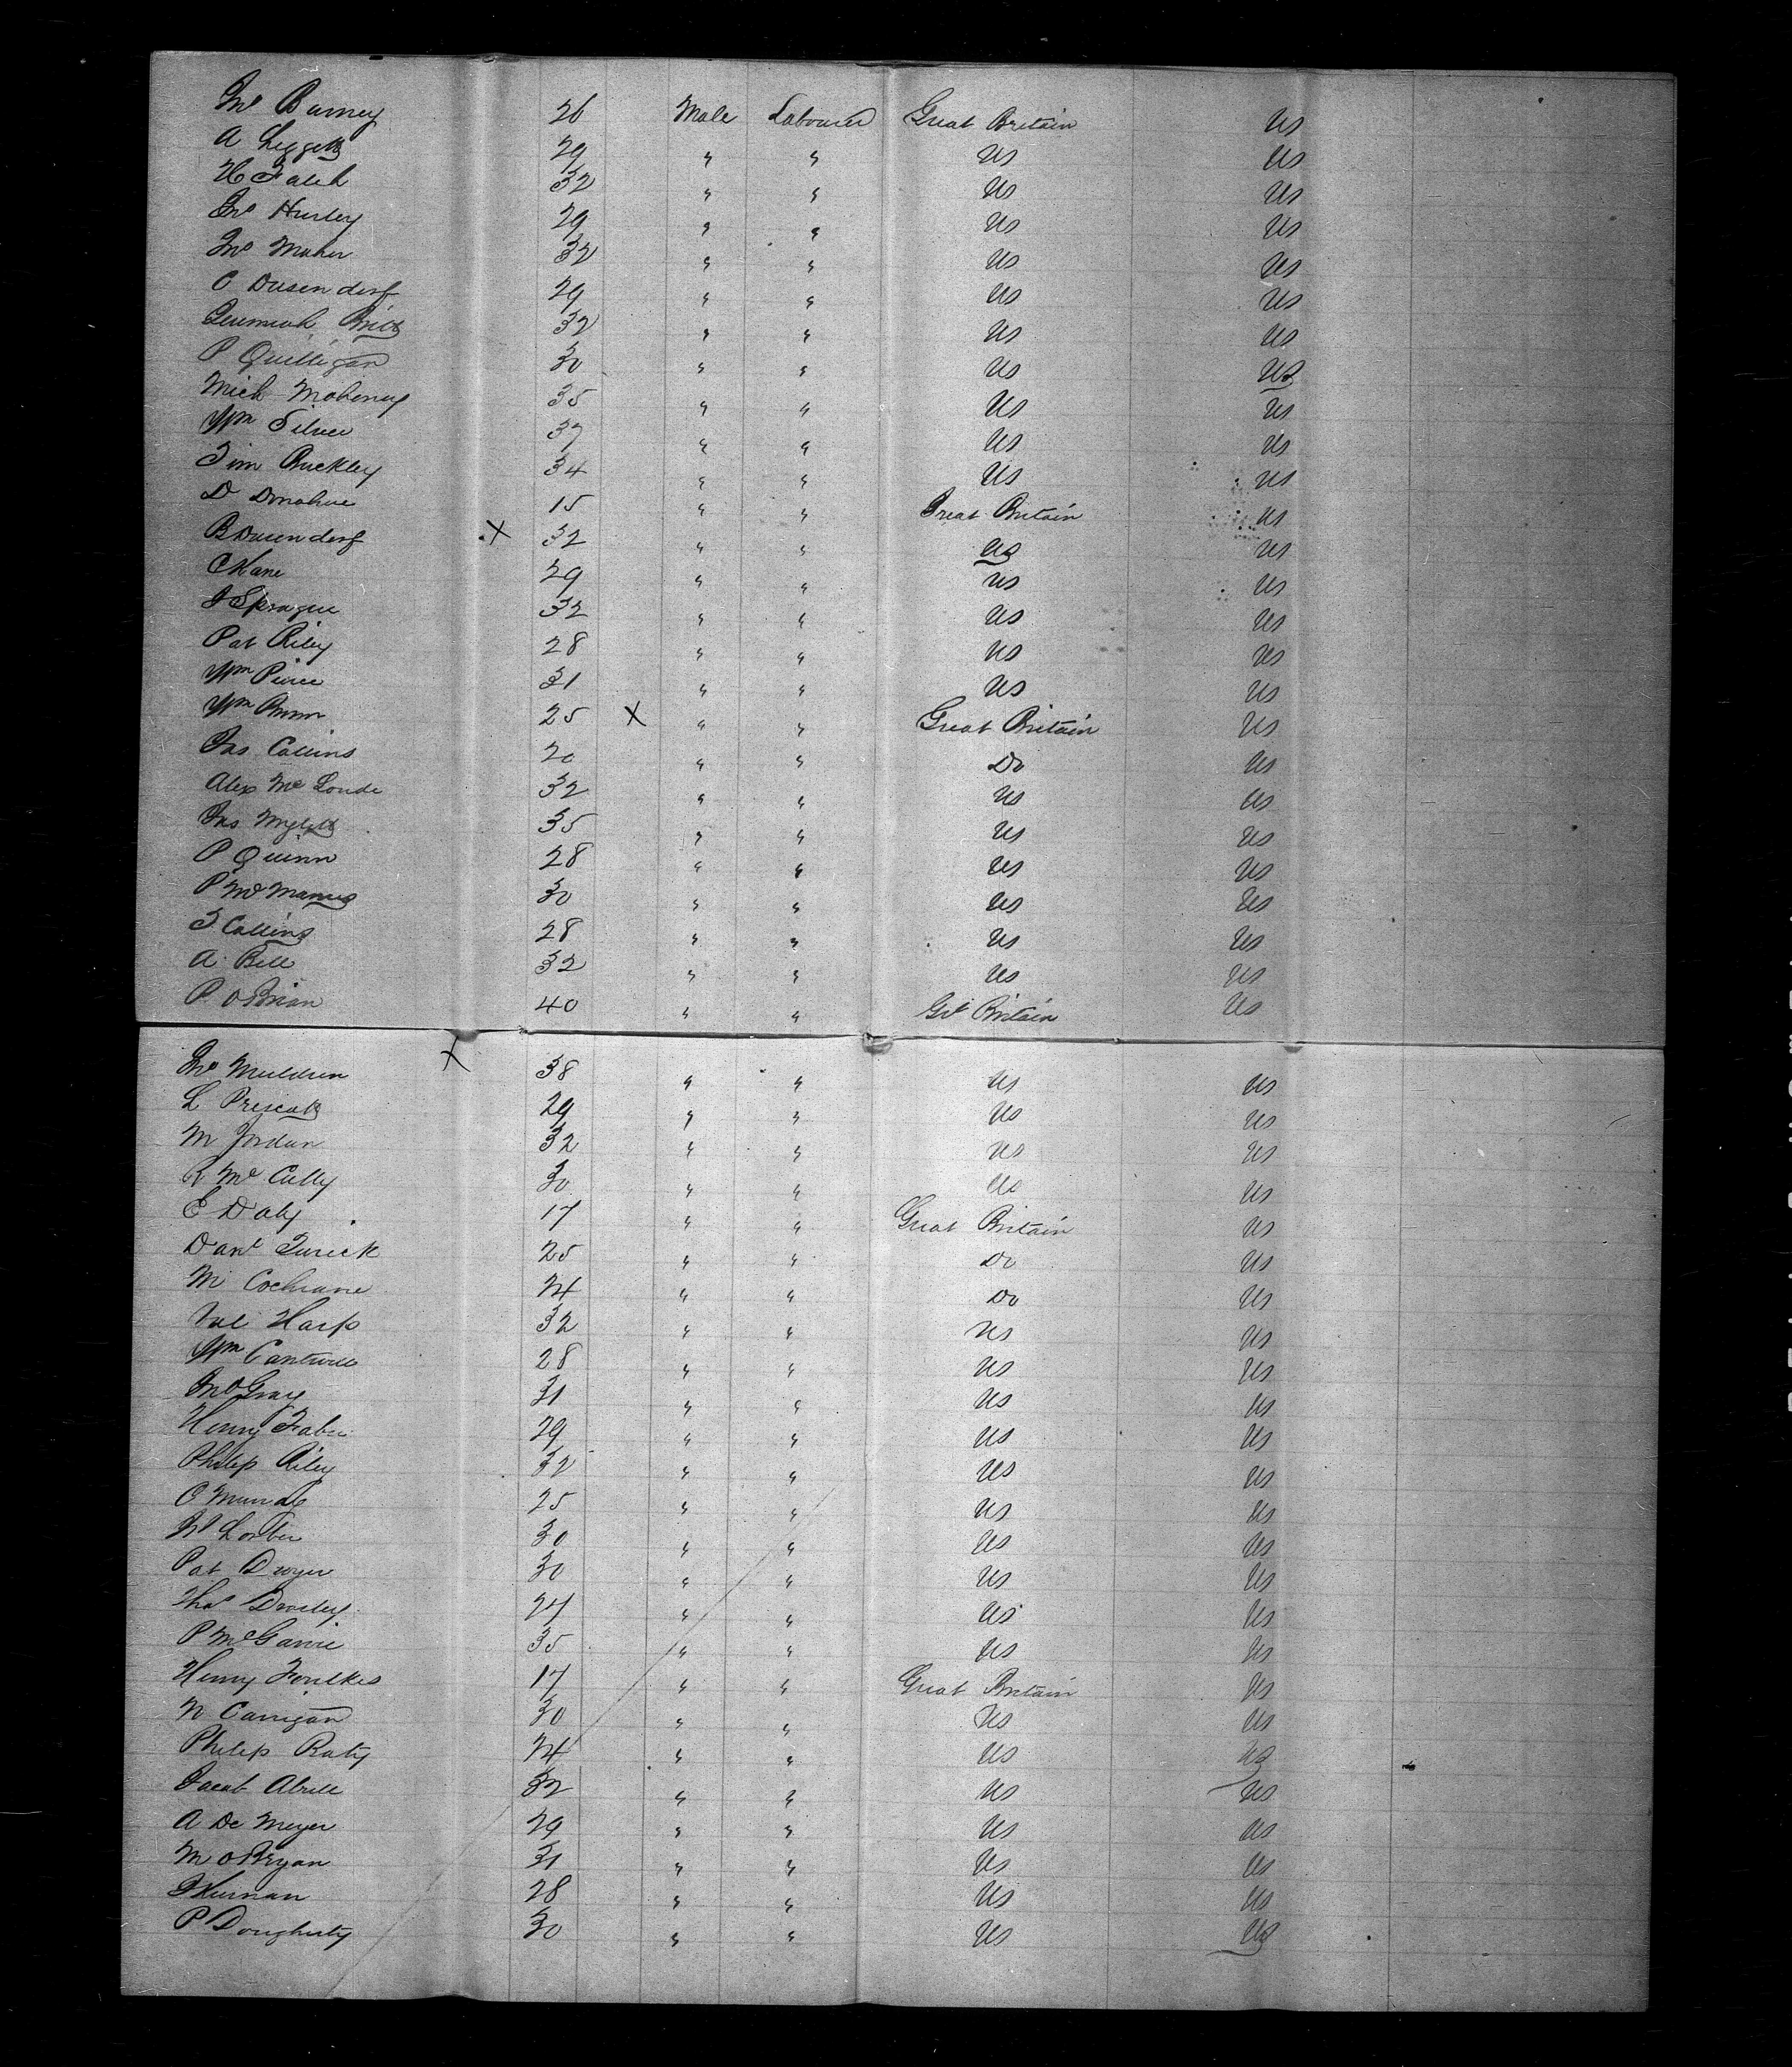 Jno Barney 26 Male Labourer Great Britain US
A Leggett 29 " " US US
H Falch 32 " " US US
Jno Hurley 29 " " US US
Jno Maher 32 " " US US
C Dusendorf 29 " " US US
Jeremiah Britt 32 " " US US
P Quilligan 30 " " US US
Mich Mahoney 35 " " US US
Wm Silver 37 " " US US
Tim Buckley 34 " " US US
D Donahue 15 " " Great Britain US
B Dusendorf X 32 " " US US
C Kane 29 " " US US
J Sprague 32 " " US US
Pat Riley 28 " " US US
Wm Pierce 31 " " US US
Wm Brown 25 X " " Great Britain US
Jas Collins 20 " " Do US
Alex Mc Londe 32 " " US US
Jas 35 " " US US
P Quinn 28 " " US US
P Mc Manus 30 " " US US
T Collins 28 " " US US
A Bell 32 " " US US
P O Brian 40 " " Gt Britain US
Jno Muldren X 38 " " US US
L Prescott 29 " " US US
M Jordan 32 " " US US
R Mc Cully 30 " " US US
E Daly 17 " " Great Britain US
Danl 25 " " Do US
M Cochrane 24 " " Do US
Val Harp 32 " " US US
Wm Cantwell 28 " " US US
Jno Gray 31 " " US US
Henry Faber 29 " " US US
Philip Riley 32 " " US US
O 25 " " US US
30 " " US US
Pat Dwyer 30 " " US US
Thos 27 " " US US
P McGarvie 35 " " US US
Henry Foulkes 17 " " Great Britain US
N Carrigan 30 " " US US
Philip Raty 24 " " US US
Jacob Abrill 32 " " US US
A De Meyer 29 " " US US
M O Bryan 31 " " US US
J Kiernan 28 " " US US
P Dougherty 30 " " US US